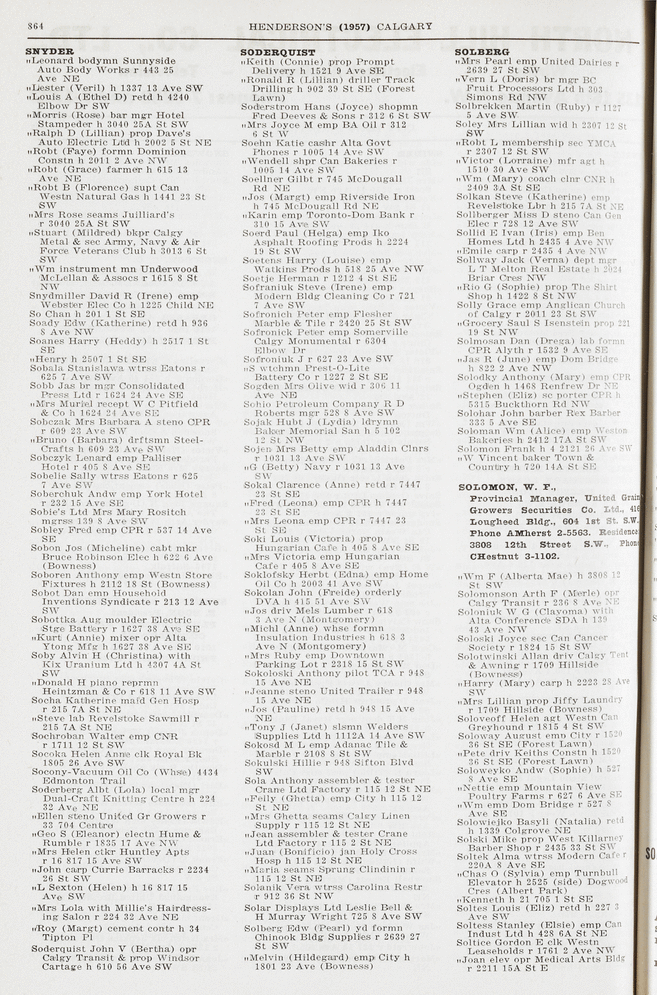 864
HENDERSON'S (1957) CALGARY
SNYDER
"Leonard bodymn Sunnyside
Auto Body Works r 443 25
Ave NE
"Lester (Veril) h 1337 13 Ave SW
"Louis A (Ethel D) retd h 4240
Elbow Dr SW
"Morris (Rose) bar mgr Hotel
Stampeder h 3040 25A St SW
"Ralph D (Lillian) prop Dave's
Auto Electric Ltd h 2002 5 St NE
"Robt (Faye) formn Dominion
Constn h 2011 2 Ave NW
"Robt (Grace) farmer h 615 13
Ave NE
"Robt B (Florence) supt Can
Westn Natural Gas h 1441 23 St
SW
"Mrs Rose seams Juilliard's
r 3040 25A St SW
"Stuart (Mildred) bkpr Calgy
Metal & sec Army, Navy & Air
Force Veterans Club h 3013 6 St
SW
"Wm instrument mn Underwood
McLellan & Assocs r 1615 8 St
NW
Snydmiller David R (Irene) emp
Webster Elec Co h 1225 Child NE
So Chan h 201 1 St SE
Soady Edw (Katherine) retd h 936
8 Ave NW
Soanes Harry (Heddy) h 2517 1 St
SE
"Henry h 2507 1 St SE
Sobala Stanislawa wtrss Eatons r
625 7 Ave SW
Sobb Jas br mgr Consolidated
Press Ltd r 1624 24 Ave SE
"Mrs Muriel recept W C Pitfield
& Co h 1624 24 Ave SE
Sobczak Mrs Barbara A steno CPR
r 609 23 Ave SW
"Bruno (Barbara) drftsmn Steel-
Crafts h 609 23 Ave SW
Sobczyk Lenard emp Palliser
Hotel r 405 8 Ave SE
Sobelie Sally wtrss Eatons r 625
7 Ave SW
Soberchuk Andw emp York Hotel
r 232 15 Ave SE
Sobie's Ltd Mrs Mary Rositch
mgrss 139 8 Ave SW
Sobley Fred emp CPR r 537 14 Ave
SE
Sobon Jos (Micheline) cabt mkr
Bruce Robinson Elec h 622 6 Ave
(Bowness)
Soboren Anthony emp Westn Store
Fixtures h 2112 18 St (Bowness)
Sobot Dan emp Household
Inventions Syndicate r 213 12 Ave
SW
Sobottka Aug moulder Electric
Stge Battery r 1627 38 Ave SE
"Kurt (Annie) mixer opr Alta
Ytong Mfg h 1627 38 Ave SE
Soby Alvin H (Christina) with
Kix Uranium Ltd h 4307 4A St
SW
"Donald H piano reprmn
Heintzman & Co r 618 11 Ave SW
Socha Katherine maid Gen Hosp
r 215 7A St NE
"Steve lab Revelstoke Sawmill r
215 7A St NE
Sochroban Walter emp CNR
r 1711 12 St SW
Socoka Helen Anne clk Royal Bk
1805 26 Ave SW
Socony-Vacuum Oil Co (Whse) 4434
Edmonton Trail
Soderberg Albt (Lola) local mgr
Dual-Craft Knitting Centre h 224
32 Ave NE
"Ellen steno United Gr Growers r
33 704 Centre
"Geo S (Eleanor) electn Hume &
Rumble r 1835 17 Ave NW
"Mrs Helen clkr Huntley Apts
r 16 817 15 Ave SW
"John carp Currie Barracks r 2234
26 St SW
"L Sexton (Helen) h 16 817 15
Ave SW
"Mrs Lola with Millie's Hairdress-
ing Salon r 224 32 Ave NE
"Roy (Margt) cement contr h 34
Tipton Pl
Soderquist John V (Bertha) opr
Calgy Transit & prop Windsor
Cartage h 610 56 Ave SW
SODERQUIST
"Keith (Connie) prop Prompt
Delivery h 1521 9 Ave SE
"Ronald R (Lillian) driller Track
Drilling h 902 39 St SE (Forest
Lawn)
Soderstrom Hans (Joyce) shopmn
Fred Deeves & Sons r 312 6 St SW
"Mrs Joyce M emp BA Oil r 312
6 St W
Soehn Katie cashr Alta Govt
Phones r 1005 14 Ave SW
"Wendell shpr Can Bakeries r
1005 14 Ave SW
Soellner Gilbt r 745 McDougall
Rd NE
"Jos (Margt) emp Riverside Iron
h 745 McDougall Rd NE
"Karin emp Toronto-Dom Bank r
310 15 Ave SW
Soerd Paul (Helga) emp Iko
Asphalt Roofing Prods h 2224
19 St SW
Soetens Harry (Louise) emp
Watkins Prods h 518 25 Ave NW
Soetje Herman r 1212 4 St SE
Sofraniuk Steve (Irene) emp
Modern Bldg Cleaning Co r 721
7 Ave SW
Sofronich Peter emp Flesher
Marble & Tile r 2420 25 St SW
Sofronick Peter emp Somerville
Calgy Monumental r 6304
Elbow Dr
Sofroniuk J r 627 23 Ave SW
"S wtchmn Prest-O-Lite
Battery Co r 1227 2 St SE
Sogden Mrs Olive wid r 306 11
Ave NE
Sohio Petroleum Company R D
Roberts mgr 528 8 Ave SW
Sojak Hubt J (Lydia) ldrymn
Baker Memorial San h 5 102
12 St NW
Sojen Mrs Betty emp Aladdin Clnrs
r 1031 13 Ave SW
"G (Betty) Navy r 1031 13 Ave
SW
Sokal Clarence (Anne) retd r 7447
23 St SE
"Fred (Leona) emp CPR h 7447
23 St SE
"Mrs Leona emp CPR r 7447 23
St SE
Soki Louis (Victoria) prop
Hungarian Cafe h 405 8 Ave SE
"Mrs Victoria emp Hungarian
Cafe r 405 8 Ave SE
Soklofsky Herbt (Edna) emp Home
Oil Co h 2003 41 Ave SW
Sokolan John (Freide) orderly
DVA h 415 51 Ave SW
"Jos driv Mels Lumber r 618
3 Ave N (Montgomery)
"Michl (Anna) whse formn
Insulation Industries h 618 3
Ave N (Montgomery)
"Mrs Ruby emp Downtown
Parking Lot r 2318 15 St SW
Sokoloski Anthony pilot TCA r 948
15 Ave NE
"Jeanne steno United Trailer r 948
15 Ave NE
"Jos (Pauline) retd h 948 15 Ave
NE
"Tony J (Janet) slsmn Welders
Supplies Ltd h 1112A 14 Ave SW
Sokosd M L emp Adanac Tile &
Marble r 2108 8 St SW
Sokulski Hillie r 948 Sifton Blvd
SW
Sola Anthony assembler & tester
Crane Ltd Factory r 115 12 St NE
"Felly (Ghetta) emp City h 115 12
St NE
"Mrs Ghetta seams Calgy Linen
Supply r 115 12 St NE
"Jean assembler & tester Crane
Ltd Factory r 115 2 St NE
"Juan (Bonificio) jan Holy Cross
Hosp h 115 12 St NE
"Maria seams Sprung Clindinin r
115 12 St NE
Solanik Vera wtrss Carolina Restr
r 912 36 St NW
Solar Displays Ltd Leslie Bell &
H Murray Wright 725 8 Ave SW
Solberg Edw (Pearl) yd formn
Chinook Bldg Supplies r 2639 27
St SW
"Melvin (Hildegard) emp City h
1801 23 Ave (Bowness)
SOLBERG
"Mrs Pearl emp United Dairies r
2639 27 St SW
"Vern L (Doris) br mgr BC
Fruit Processors Ltd h 303
Simons Rd NW
Solbrekken Martin (Ruby) r 1127
5 Ave SW
Soley Mrs Lillian wid h 2307 12 St
SW
"Robt L membership sec YMCA
r 2307 12 St SW
"Victor (Lorraine) mfr agt h
1510 30 Ave SW
"Wm (Mary) coach clnr CNR h
2409 3A St SE
Solkan Steve (Katherine) emp
Revelstoke Lbr h 215 7A St NE
Sollberger Miss D steno Can Gen
Elec r 728 12 Ave SW
Sollid E Ivan (Iris) emp Ben
Homes Ltd h 2435 4 Ave NW
"Emile carp r 2435 4 Ave NW
Sollway Jack (Verna) dept mgr
L T Melton Real Estate h 2024
Briar Cres NW
"Rio G (Sophie) prop The Shirt
Shop h 1422 8 St NW
Solly Grace emp Anglican Church
of Calgy r 2011 23 St SW
"Grocery Saul S Isenstein prop 221
19 St NW
Solmosan Dan (Drega) lab formn
CPR Alyth r 1532 9 Ave SE
"Jas R (June) emp Dom Bridge
h 822 2 Ave NW
Solodky Anthony (Mary) emp CPR
Ogden h 1468 Renfrew Dr NE
"Stephen (Eliz) sc porter CPR h
5315 Buckthorn Rd NW
Solohar John barber Rex Barber
333 5 Ave SE
Soloman Wm (Alice) emp Weston
Bakeries h 2412 17A St SW
Solomon Frank h 4 2121 26 Ave SW
"W Vincent baker Town &
Country h 720 14A St SE
SOLOMON, W. F.,
Provincial Manager, United Grain
Growers Securities Co. Ltd., 416
Lougheed Bldg., 604 1st St. S.W.
Phone AMherst 2-5563. Residence
3808 12th Street S.W., Phone
CHestnut 3-1102.
"Wm F (Alberta Mae) h 3808 12
St SW
Solomonson Arth F (Merle) opr
Calgy Transit r 236 8 Ave NE
Soloniuk W G (Clavoyna) with
Alta Conference SDA h 139
43 Ave NW
Soloski Joyce sec Can Cancer
Society r 1824 15 St SW
Solotwinski Allan driv Calgy Tent
& Awning r 1709 Hillside
(Bowness)
"Harry (Mary) carp h 2223 28 Ave
SW
"Mrs Lillian prop Jiffy Laundry
r 1709 Hillside (Bowness)
Soloveoff Helen agt Westn Can
Greyhound r 1815 4 St SW
Soloway August emp City r 1520
36 St SE (Forest Lawn)
"Pete driv Keiths Constn h 1520
36 St SE (Forest Lawn)
Soloweyko Andw (Sophie) h 527
8 Ave SE
"Nettie emp Mountain View
Poultry Farms r 627 6 Ave SE
"Wm emp Dom Bridge r 527 8
Ave SE
Solowiejko Basyli (Natalia) retd
h 1339 Colgrove NE
Solski Mike prop West Killarney
Barber Shop r 2435 33 St SW
Soltek Alma wtrss Modern Cafe r
220A 8 Ave SE
"Chas O (Sylvia) emp Turnbull
Elevator h 2525 (side) Dogwood
Cres (Albert Park)
"Kenneth h 21 705 1 St SE
Soltes Louis (Eliz) retd h 227 3
Ave SW
Soltess Stanley (Elsie) emp Can
Indust Ltd h 428 6A St NE
Soltice Gordon E clk Westn
Leaseholds r 1761 2 Ave NW
"Joan elev opr Medical Arts Bldg
r 2211 15A St E
SO